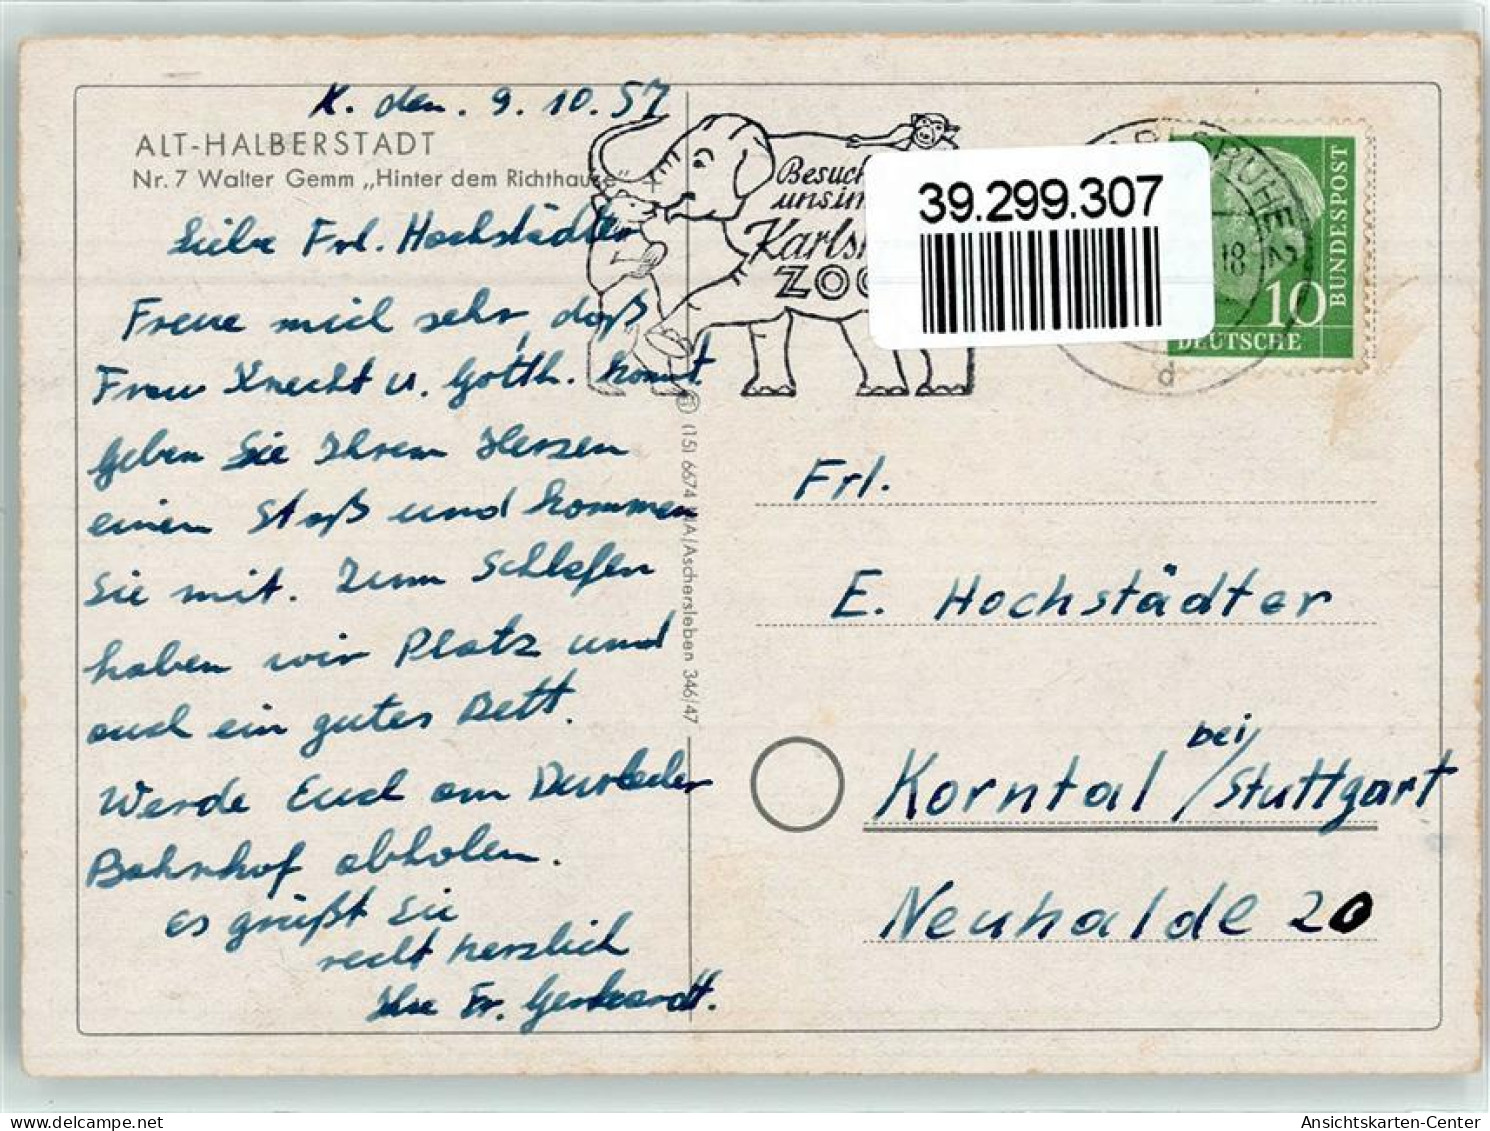 K. den. 9. 10. 57
ALT-HALBERSTADT
Nr. 7 Walter Gemm „Hinter dem Richthause"
Liebe Frl. Hochstädter
Freue mich sehr, daß
Frau Knecht u. Gotth. kommt.
Geben Sie Ihrem Herzen
einen Stoß und kommen
Sie mit. Zum Schlafen
haben wir Platz und
auch ein gutes Bett.
Werde Euch am Durlacher
Bahnhof abholen.
Es grüßt Sie
recht herzlich
Ihre Fr. Gerhardt.
(15) 6674 /Aschersleben 346/47
Besuch
uns im
Karls
ZOO
39.299.307
KARLSRUHE 2
18
d
10
DEUTSCHE
BUNDESPOST
Frl.
E. Hochstädter
Korntal bei/Stuttgart
Neuhalde 20
Ansichtskarten-Center